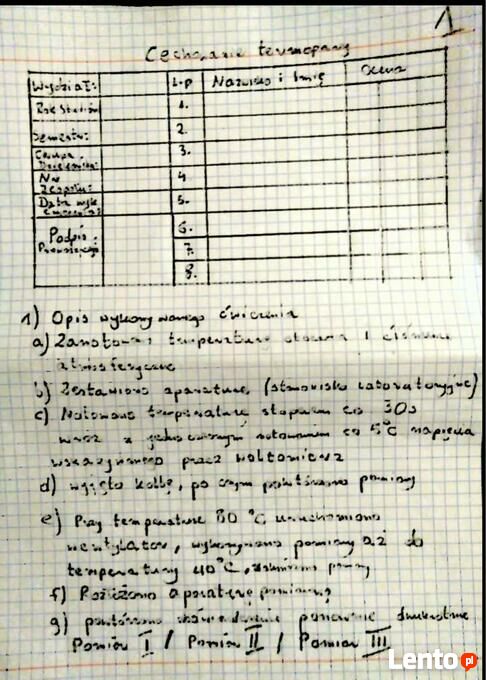 1
Cechowanie termopary
Wydział: L.p Nazwisko i Imię Ocena
Rok Studiów 1.
Semestr: 2.
Grupa 3.
Dziekańska:
Nr 4.
Zespołu: 5.
Data wyk.
Podpis 6.
7.
8.
1) Opis wykonywanego ćwiczenia
a) Zanotowano temperaturę otoczenia i ciśnienie
atmosferyczne
b) Zestawiono aparaturę (stanowisko laboratoryjne)
c) Notowano temperaturę stopniem co 30s
wraz z jednoczesnym notowaniem co 5°C napięcia
wskazywanego przez woltomierz
d) wyjęto kolbę, po czym powtórzono pomiary
e) Przy temperaturze 80 °C uruchomiono
wentylator, wykonywano pomiary aż do
temperatury 40°C,
f) Rozłożono aparaturę pomiarową
g) powtórzono doświadczenie ponownie dwukrotnie
Pomiar I / Pomiar II / Pomiar III
Lento.pl